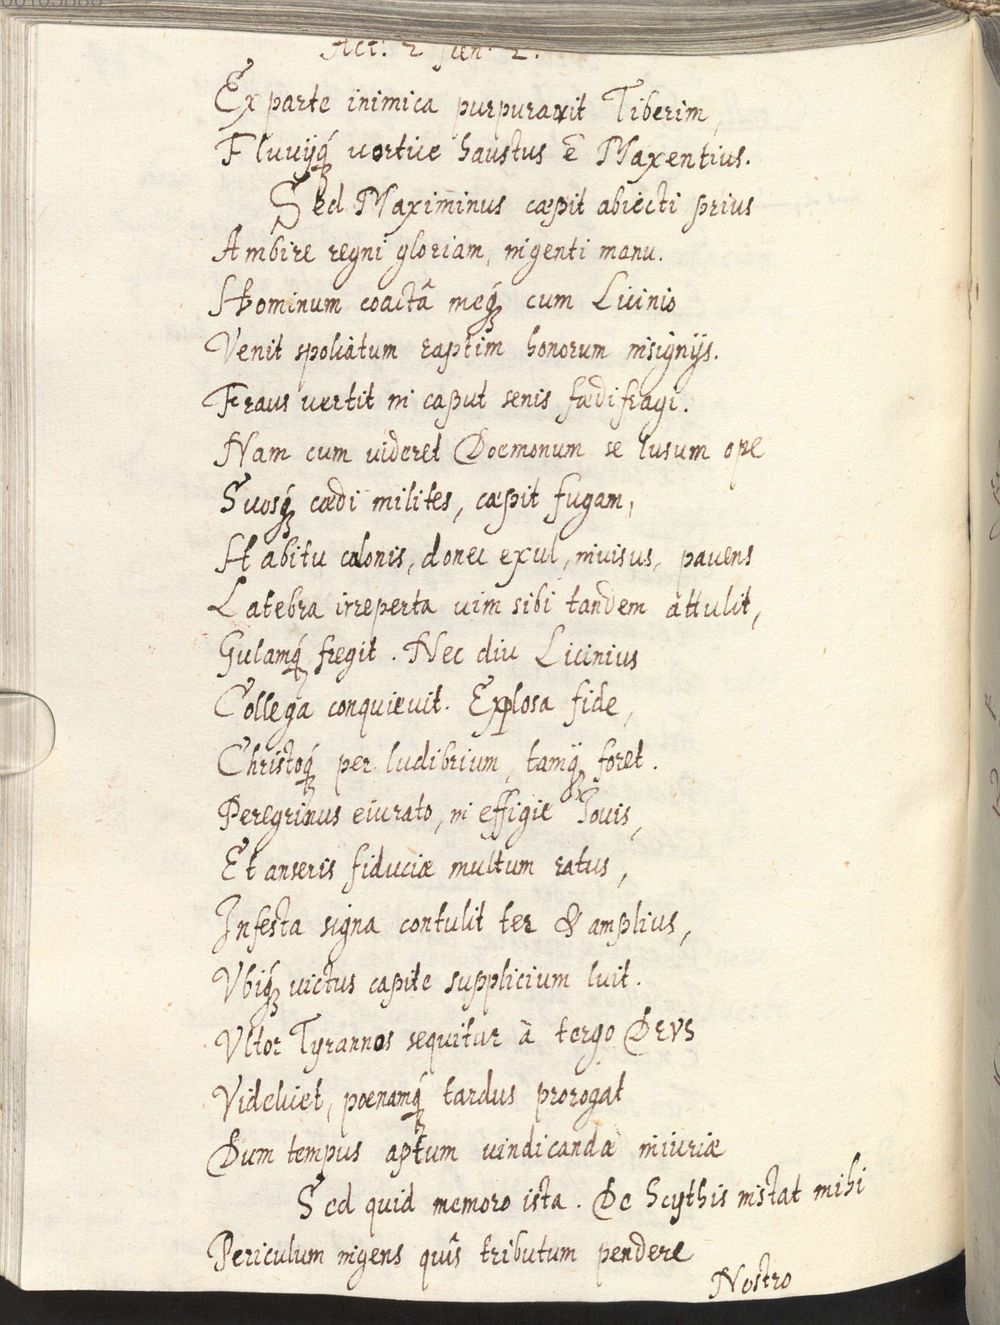 Act: 2 scen: 2.
Ex parte inimica purpuravit Tiberim,
Fluvijq́ vortice haustus ē Maxentius.
Sed Maximinus cæpit abiecti prius
Ambire regni gloriam, ingenti manu.
Hominum coactâ meq́ cum Licinio
Venit spoliatum raptim honorum insignijs.
Fraus vertit in caput senis fœdifragi.
Nam cum videret Doemonum se lusum ope
Suosq́ cædi milites, cæpit fugam,
Habitu colonis, donec exul, invisus, pavens
Latebra irreperta vim sibi tandem attulit,
Gulamq́ fregit. Nec diu Licinius
Collega conquievit. Explosa fide,
Christoq́ per ludibrium, tamq̄ foret.
Peregrinus eiurato, in effigie Iouis,
Et anseris fiduciæ multum ratus,
Infesta signa contulit ter & amplius,
Vbiq́ victus capite supplicium luit.
Vltor Tyrannos sequitur à tergo DEVS
Videlicet, poenamq́ tardus prorogat
Dum tempus aptum vindicandæ iniuriæ
Sed quid memoro ista. De Scythis instat mihi
Periculum ingens quîs tributum pendere
Nostro